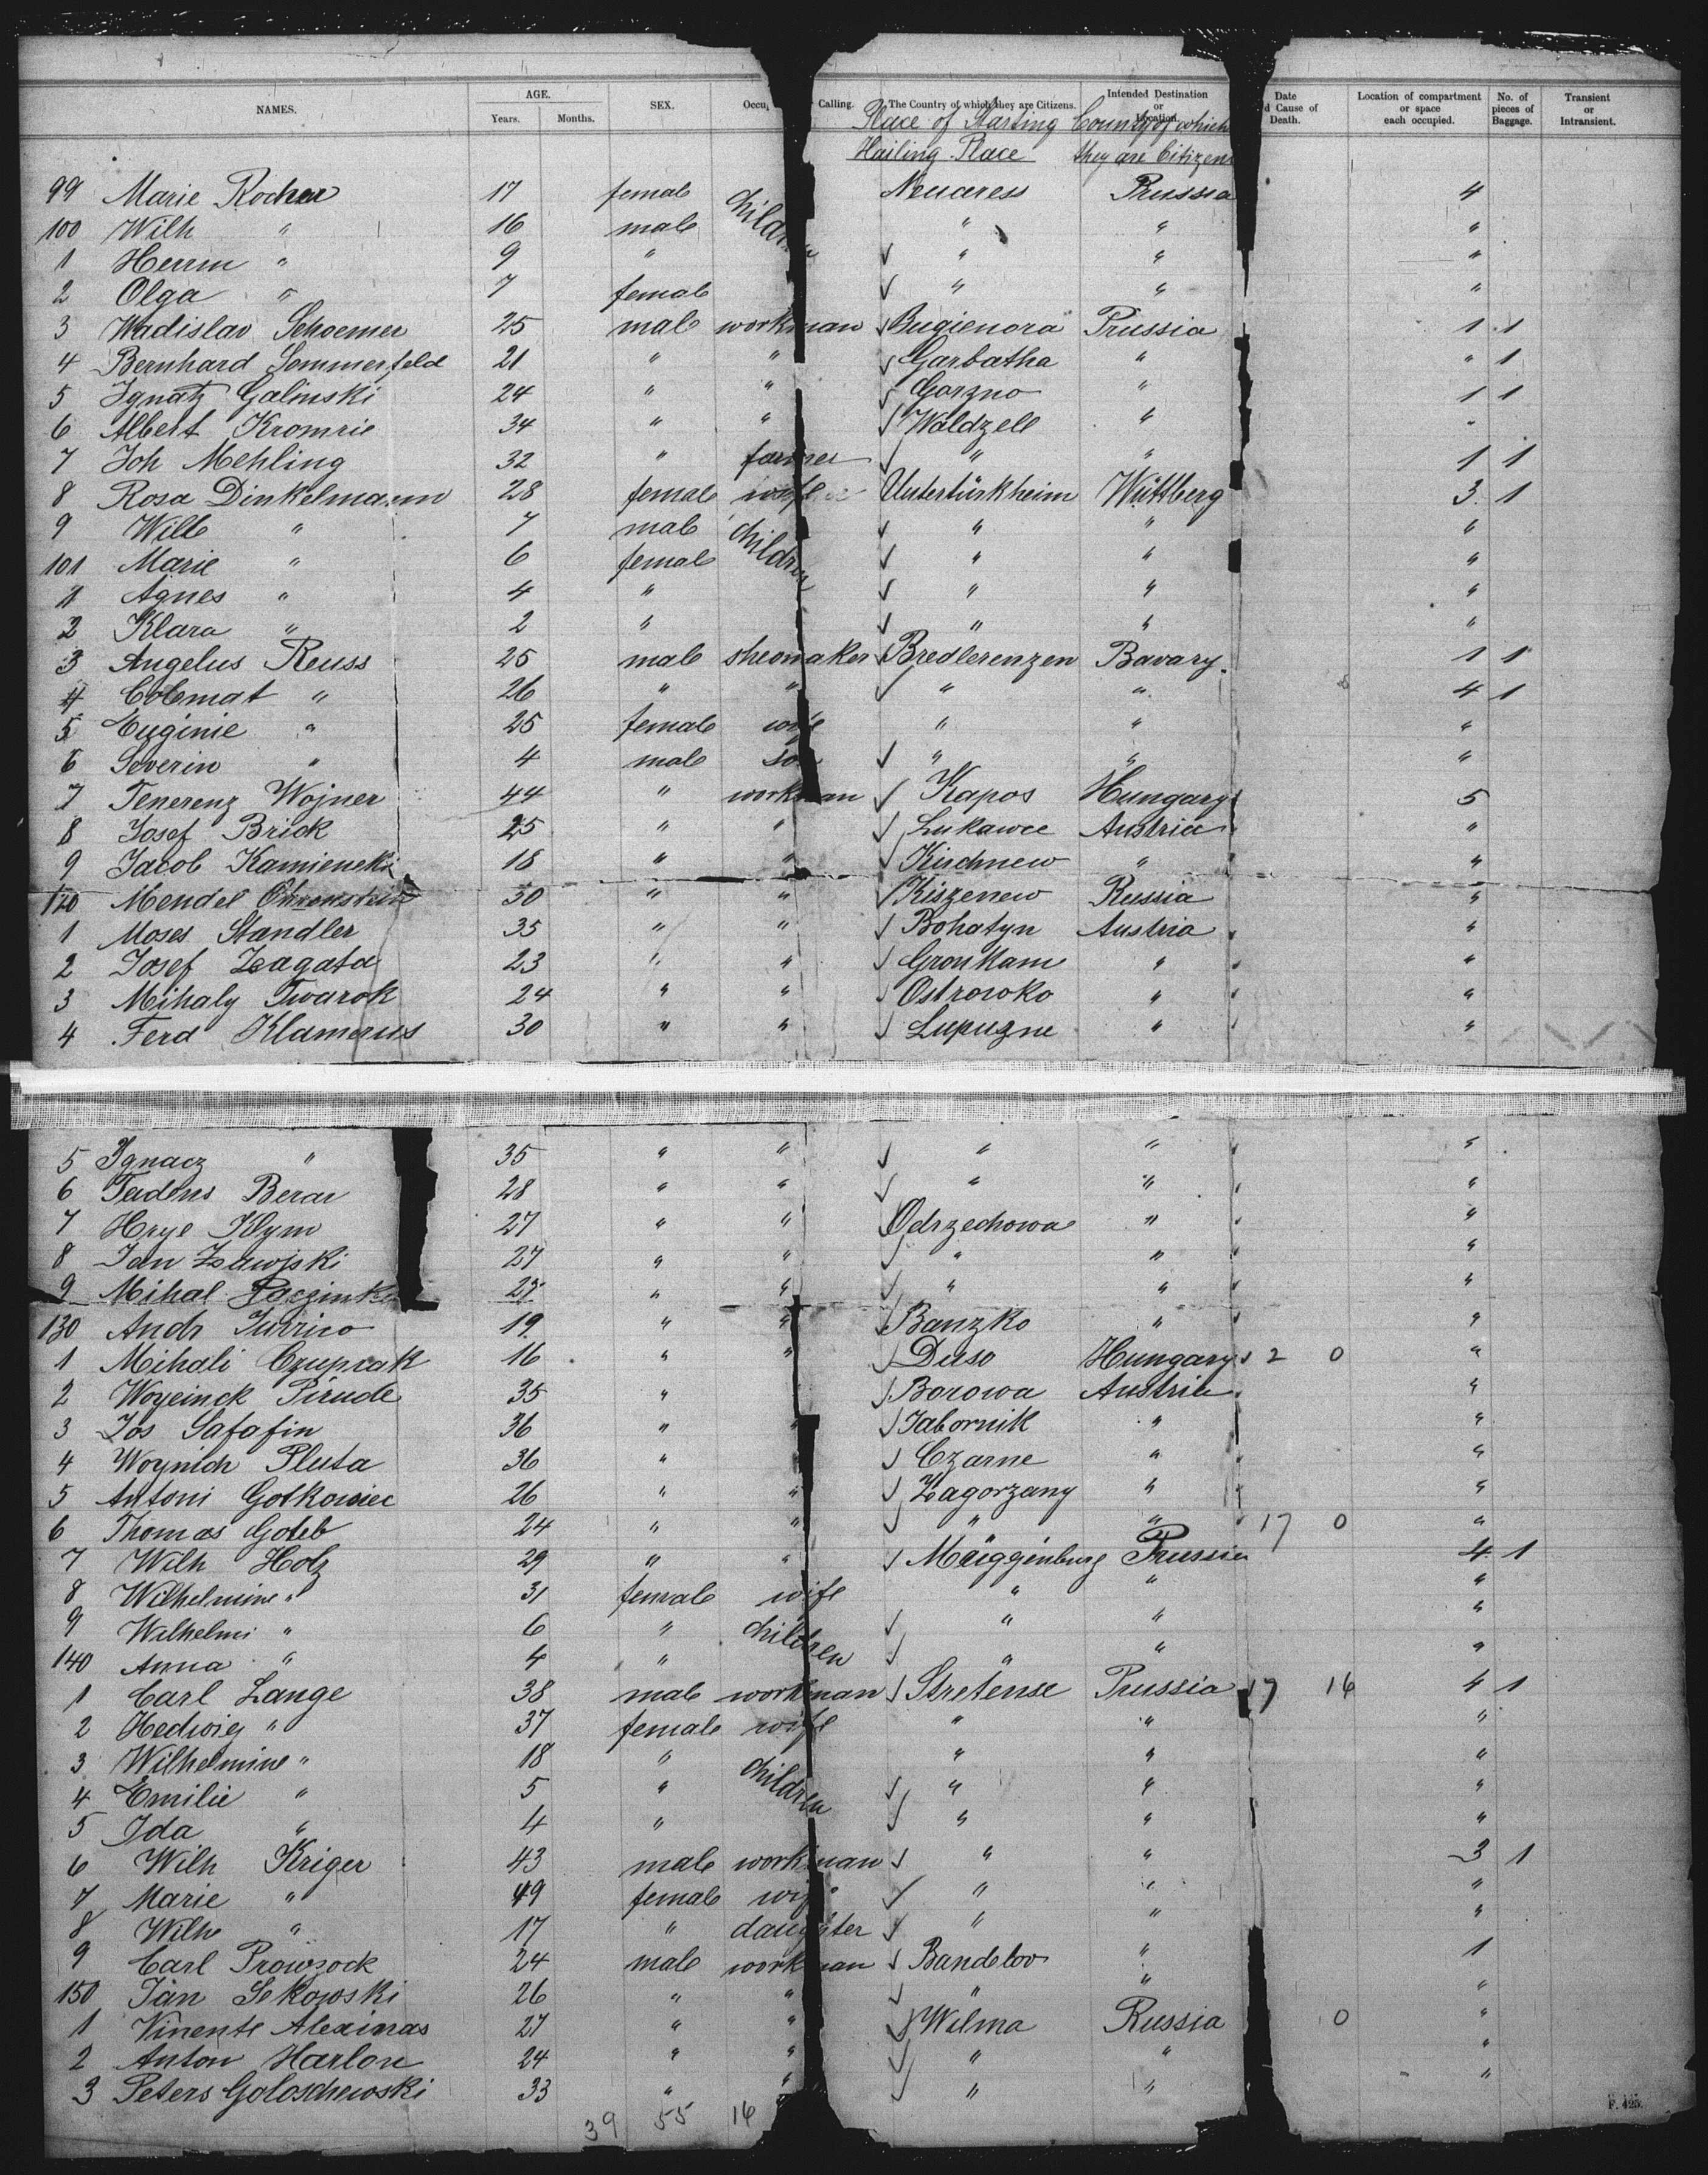 NAMES. AGE. Years. Months. SEX. Occu Calling. The Country of which they are Citizens. Intended Destination or Location. Date d Cause of Death. Location of compartment or space each occupied. No. of pieces of Baggage. Transient or Intransient.
Place of Starting Country of which
Hailing Place they are Citizens
99 Marie Rocher 17 female children Neuaress Prussia 4
100 Wilh " 16 male " " "
1 Herrm " 9 " " " "
2 Olga " 7 female " " "
3 Wadislav Schoemer 25 male workman Bugienora Prussia 1 1
4 Bernhard Sommerfeld 21 " " Garbatha " " 1
5 Ignatz Galinski 24 " " Gorzno " 1 1
6 Albert Kromrie 34 " " Waldzell " "
7 Joh Mehling 32 " farmer " " 1 1
8 Rosa Dinkelmann 28 female wife Untertürkheim Württberg 3 1
9 Wille " 7 male children " " "
101 Marie " 6 female " " "
1 Agnes " 4 " " " "
2 Klara " 2 " " " "
3 Angelus Reuss 25 male sheomaker Bredlerenzen Bavary. 1 1
4 Colemat " 26 " " " " 4 1
5 Euginie " 25 female wife " " "
6 Severin " 4 male son " " "
7 Tenerenz Wojner 44 " workman Kapos Hungary 5
8 Josef Brick 25 " " Lukawce Austria "
9 Jacob Kamienski 18 " " Kirchnew " "
120 Mendel Ohrenstein 30 " " Kiszenew Russia "
1 Moses Standler 35 " " Bohatyn Austria "
2 Josef Zagata 23 " " Gronkam " "
3 Mihaly Twarok 24 " " Ostrowko " "
4 Ferd Klamerus 30 " " Lupuzne " "
5 Ignacz " 35 " " " " "
6 Tadeus Berar 28 " " " " "
7 Hrye Klym 27 " " Odrzechowa " "
8 Jan Zawjski 27 " " " " "
9 Mihal 27 " " " " "
130 Andr 19 " " Banzko " "
1 Mihali Czuprak 16 " " Duso Hungary 2 0 "
2 Woyeinck Pirude 35 " Borowa Austria "
3 Jos Safafin 36 " " Jabornik " "
4 Woynich Pluta 36 " Czarne " "
5 Antoni Gotkowiec 26 " " Zagorzany " "
6 Thomas Goleb 24 " " " " 17 0 "
7 Wilh Holz 29 " " Müggenburg Prussia 4 1
8 Wilhelmine " 31 female wife " " "
9 Wilhelmi " 6 " children " " "
140 Anna " 4 " " " "
1 Carl Lange 38 male workman Stretense Prussia 17 16 4 1
2 Hedwig " 37 female wife " " "
3 Wilhelmine " 18 " children " " "
4 Emilie " 5 " " " "
5 Ida " 4 " " " "
6 Wilh Kriger 43 male workman " " 3 1
7 Marie " 49 female wife " " "
8 Wilh " 17 " daughter " " "
9 Carl Prowsock 24 male workman Bandelov " 1
150 Jan Sekowski 26 " " " " "
1 Vinente Aleximas 27 " " Wilma Russia 0 "
2 Anton Harlon 24 " " " " "
3 Peters Goloschewski 33 " " " " "
39 55 16
F. 425.